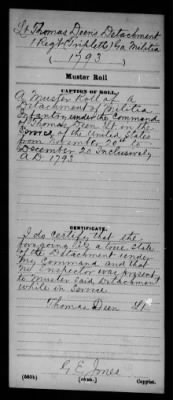 Lt Thomas Deens Detachment
1 Regt (Triplett's) Ga Militia
(1793)
Muster Roll
CAPTION OF ROLL.
A Muster Roll of a
Detachment of Militia
Infantry under the Command
of Thomas Deen Lt in the
Service of the United States
from November 20th to
December 20 Inclusively
AD 1793
CERTIFICATE.
I do certify that the
foregoing is a true State
of the Detachment under
my Command and that
no Inspector was present
to Muster said Detachment
while in Service
Thomas Deen Lt.
G E Jones
Copyist.